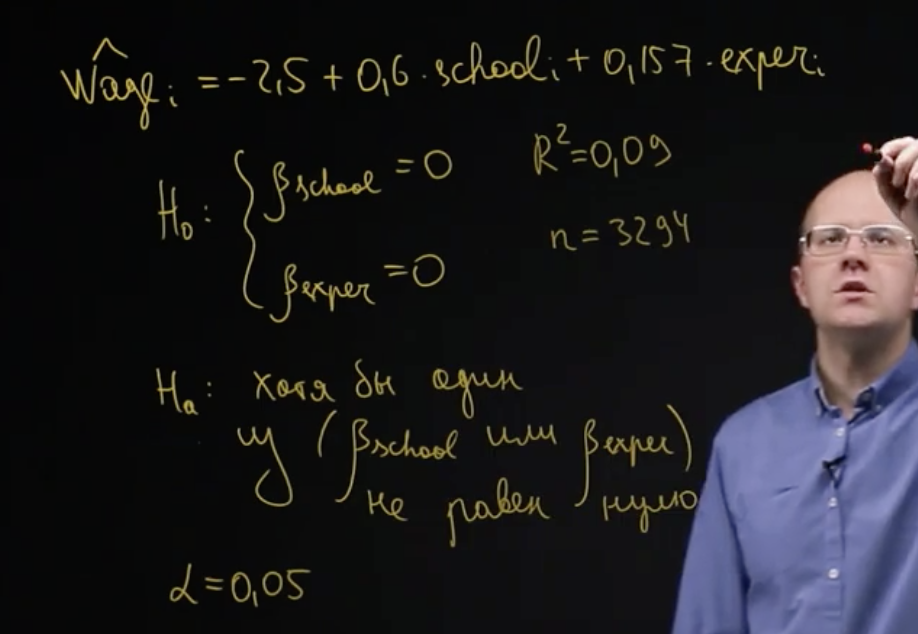 Wageᵢ^ = -2,5 + 0,6 · schoolᵢ + 0,157 · experᵢ
H₀: { βschool = 0
R² = 0,09
n = 3294
βexper = 0
Hₐ: хотя бы один
из (βschool или βexper)
не равен нулю
α = 0,05